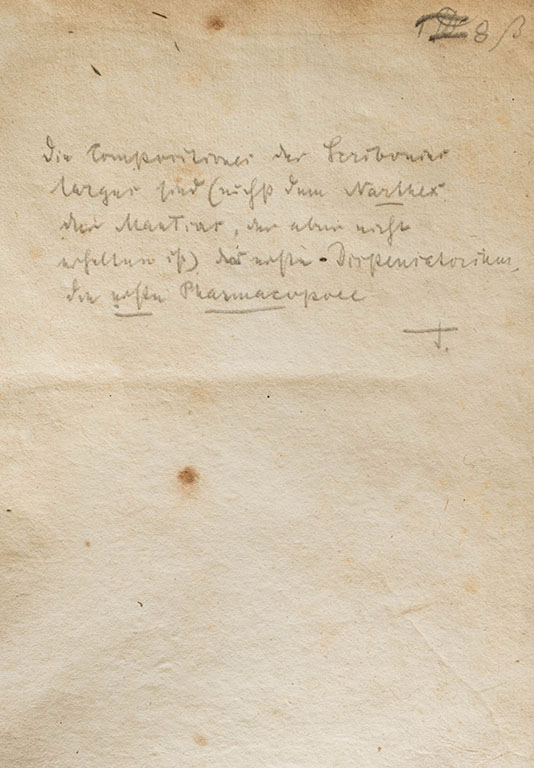 8 β
Die Compositiones des Scribonius
largus sind (nächst dem Narthex
des Mantias, der aber nicht
erhalten ist) das erste Dispensatorium,
die erste Pharmacopoee
T.